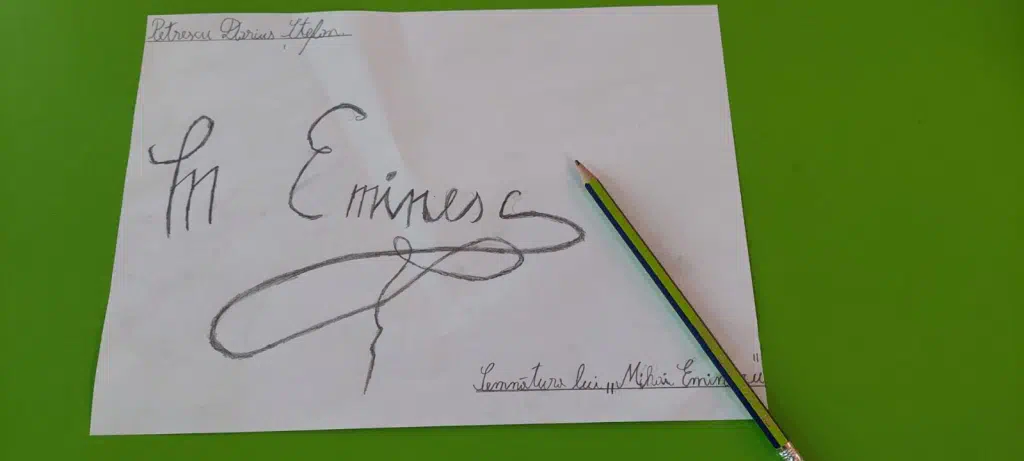 Petrescu Darius Ștefan.
M Eminesc
Semnătura lui „Mihai Eminescu”